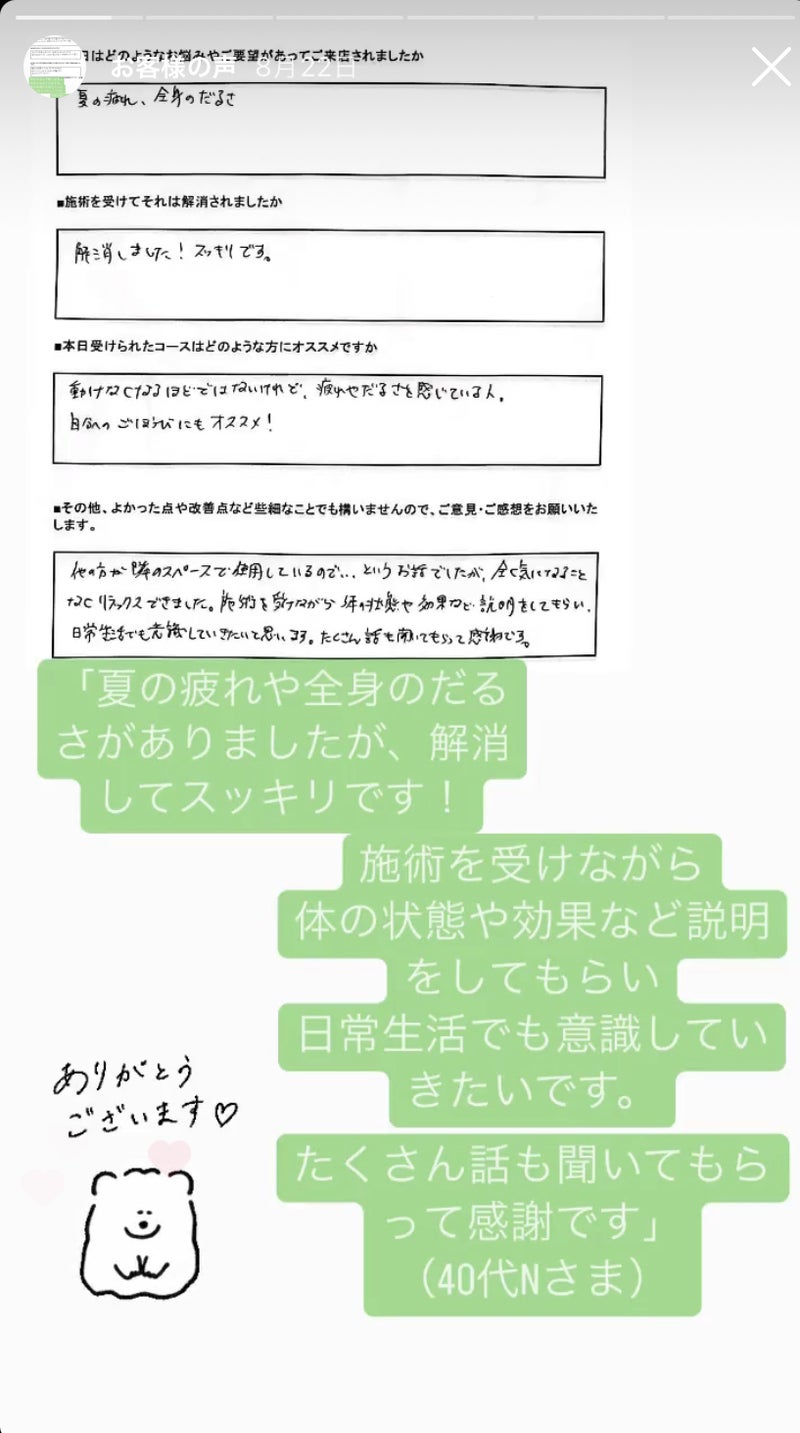 日はどのようなお悩みやご要望があってご来店されましたか
お客様の声 8月22日
夏の疲れ、全身のだるさ
■施術を受けてそれは解消されましたか
解消しました！スッキリです。
■本日受けられたコースはどのような方にオススメですか
動けなくなるほどではないけれど、疲れやだるさを感じている人。
自分へのごほうびにもオススメ！
■その他、よかった点や改善点など些細なことでも構いませんので、ご意見・ご感想をお願いいた
します。
他の方が隣のスペースで使用しているので...というお話でしたが、全く気になること
なくリラックスできました。施術を受けながら体の状態や効果など説明をしてもらい、
日常生活でも意識していきたいと思います。たくさん話も聞いてもらって感謝です。
「夏の疲れや全身のだる
さがありましたが、解消
してスッキリです！
施術を受けながら
体の状態や効果など説明
をしてもらい
日常生活でも意識してい
きたいです。
たくさん話も聞いてもら
って感謝です」
（40代Nさま）
ありがとう
ございます♡